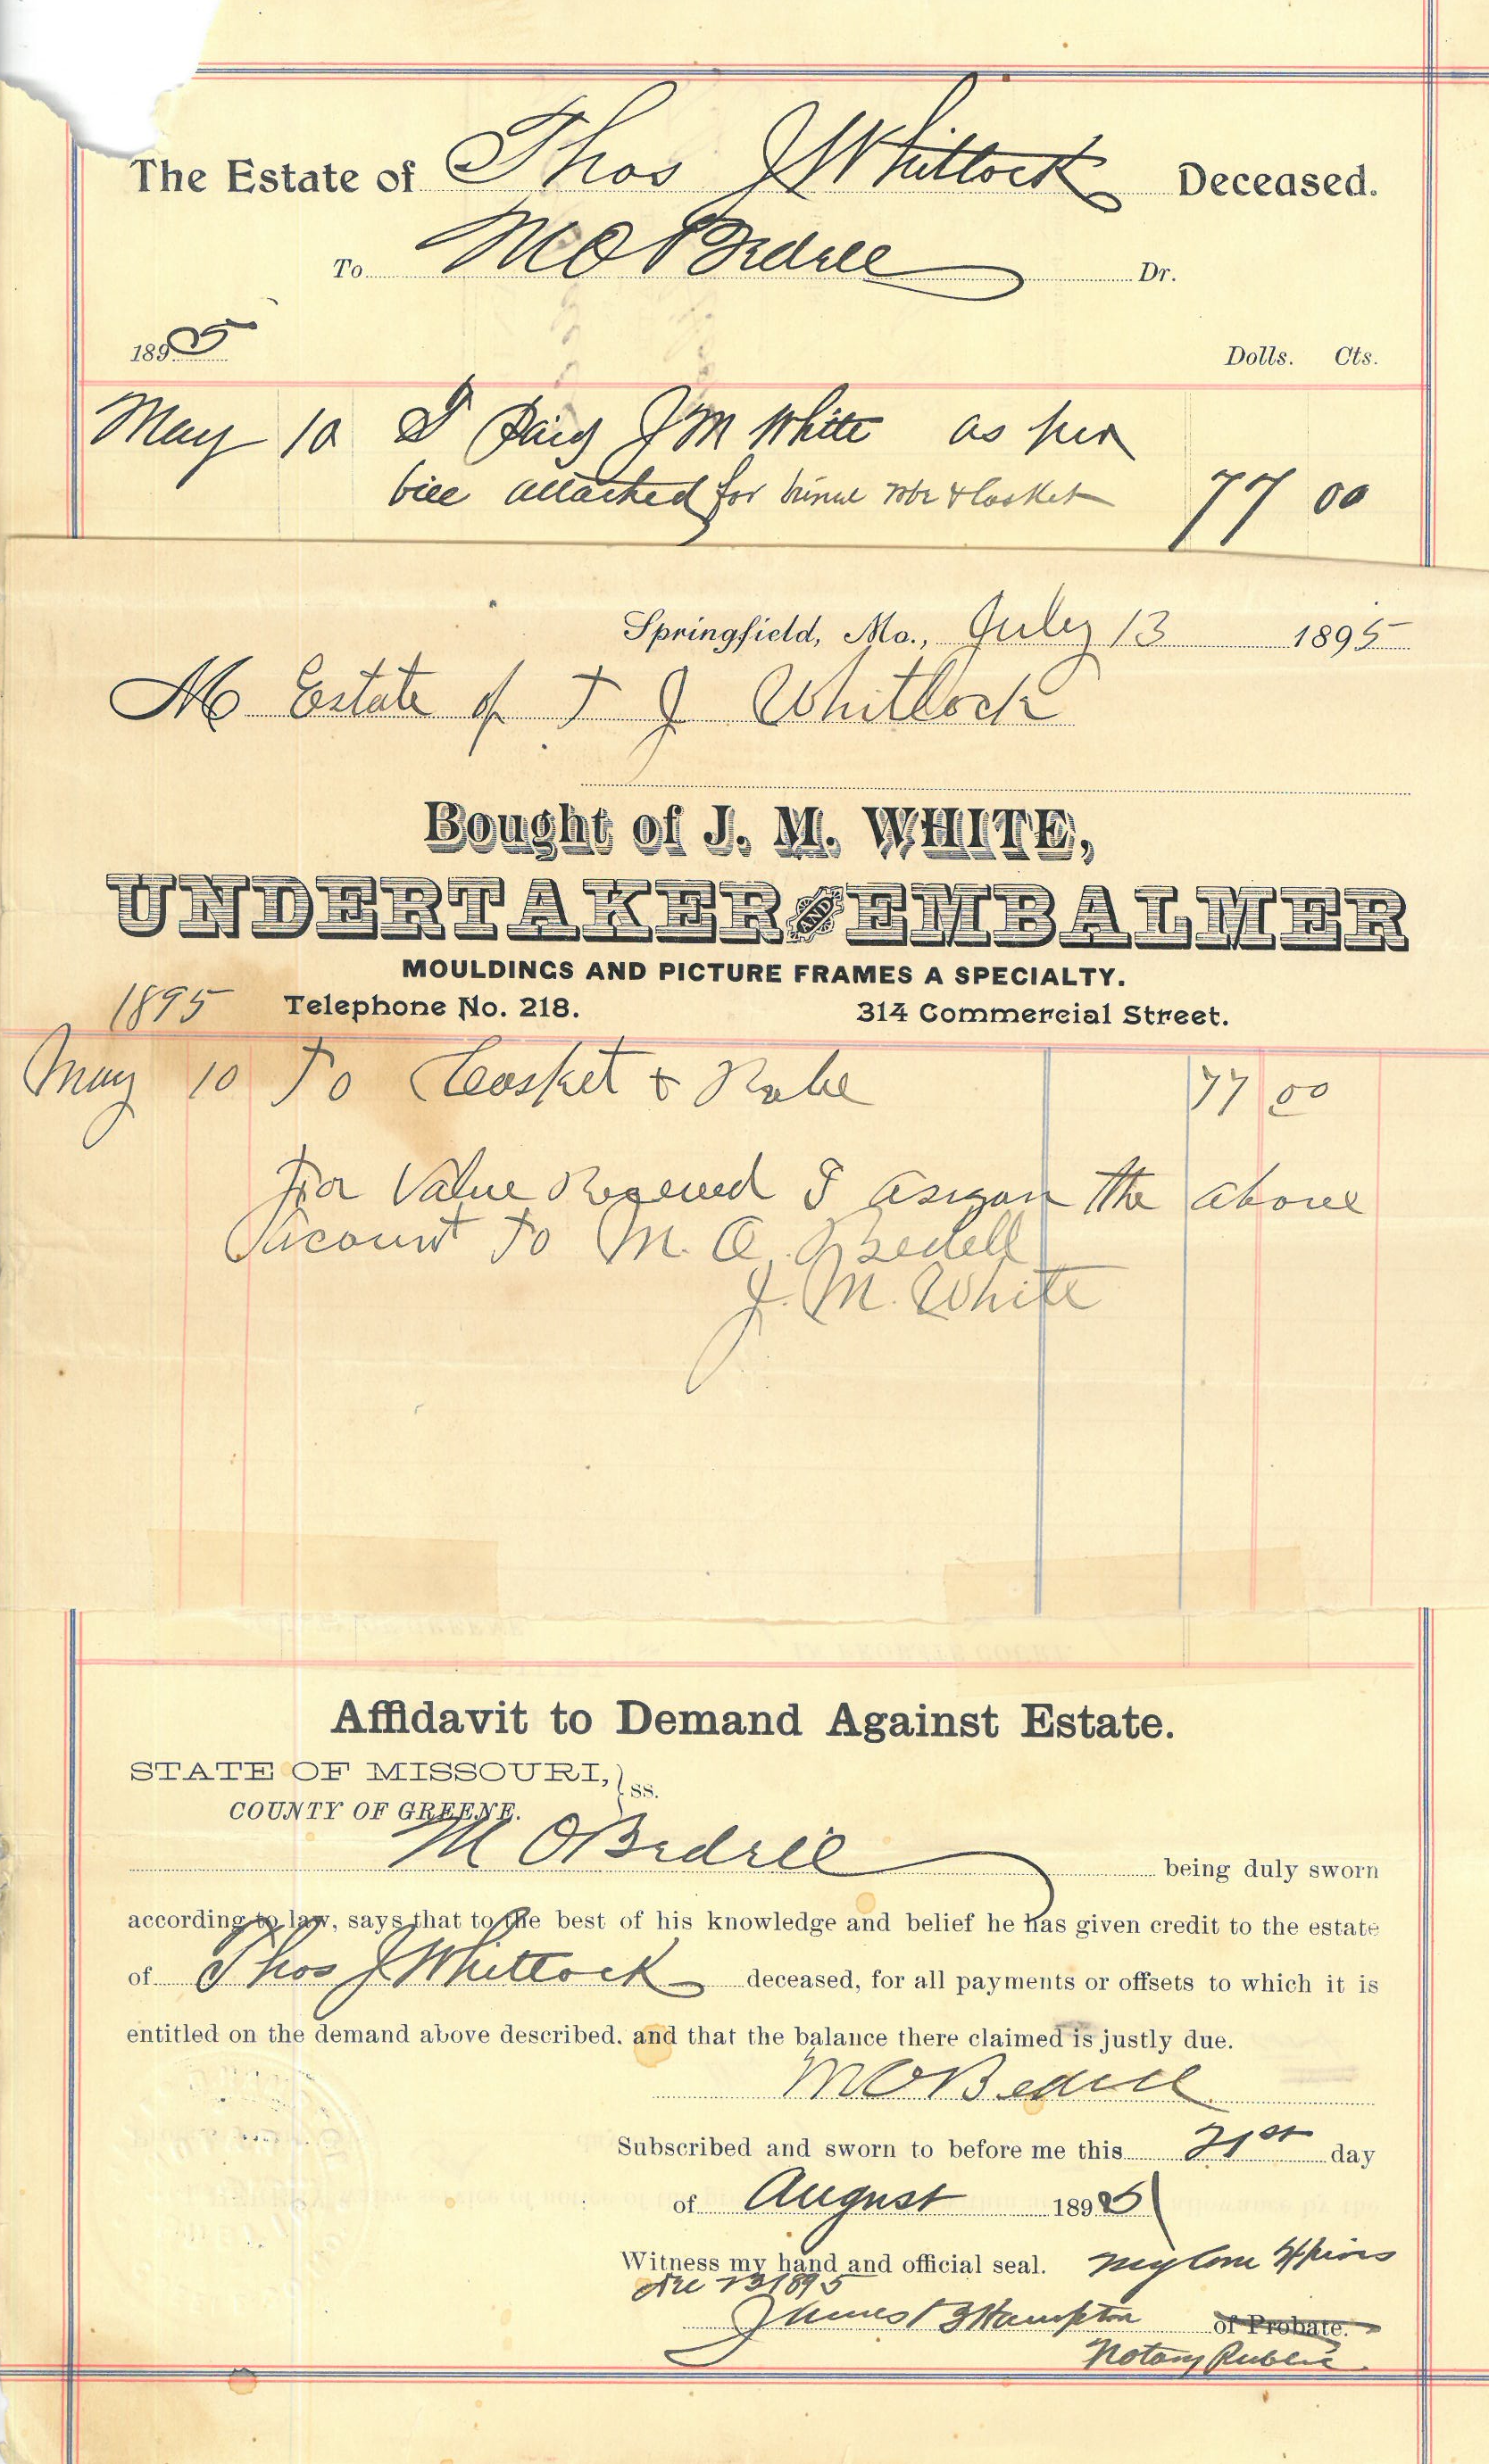 The Estate of Thos J Whitlock Deceased.
To M O Bedell Dr.
1895 Dolls. Cts.
May 10 I Paid J M White as per
bill attached for burial robe & Casket 77 00
Springfield, Mo., July 13 1895
M Estate of T J Whitlock
Bought of J. M. WHITE,
UNDERTAKER AND EMBALMER
MOULDINGS AND PICTURE FRAMES A SPECIALTY.
1895 Telephone No. 218. 314 Commercial Street.
May 10 To Casket & Robe 77 00
For Value Received I asign the above
Account to M. O. Bedell
J. M. White
Affidavit to Demand Against Estate.
STATE OF MISSOURI, } ss.
COUNTY OF GREENE.
M O Bedell being duly sworn
according to law, says that to the best of his knowledge and belief he has given credit to the estate
of Thos J Whitlock deceased, for all payments or offsets to which it is
entitled on the demand above described. and that the balance there claimed is justly due.
M O Bedell
Subscribed and sworn to before me this 21st day
of August 1895
Witness my hand and official seal. My Com Expires
Dec 13 1895
James B Hampton of Probate.
Notary Public